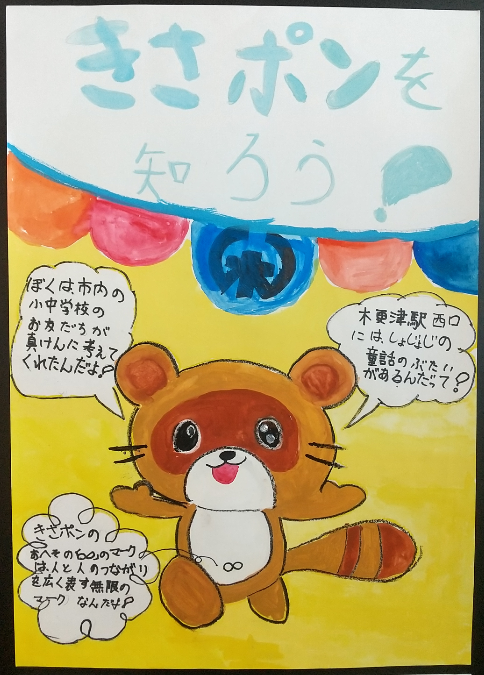 きさポンを
知ろう!
ぼくは、市内の
小中学校の
お友だちが
真けんに考えて
くれたんだよ!
木更津駅西口
には、しょじょじの
童話のぶたい
があるんだって?
きさポンの
おへその∞のマーク
は、人と人のつながり
を広く表す無限の
マークなんだよ!